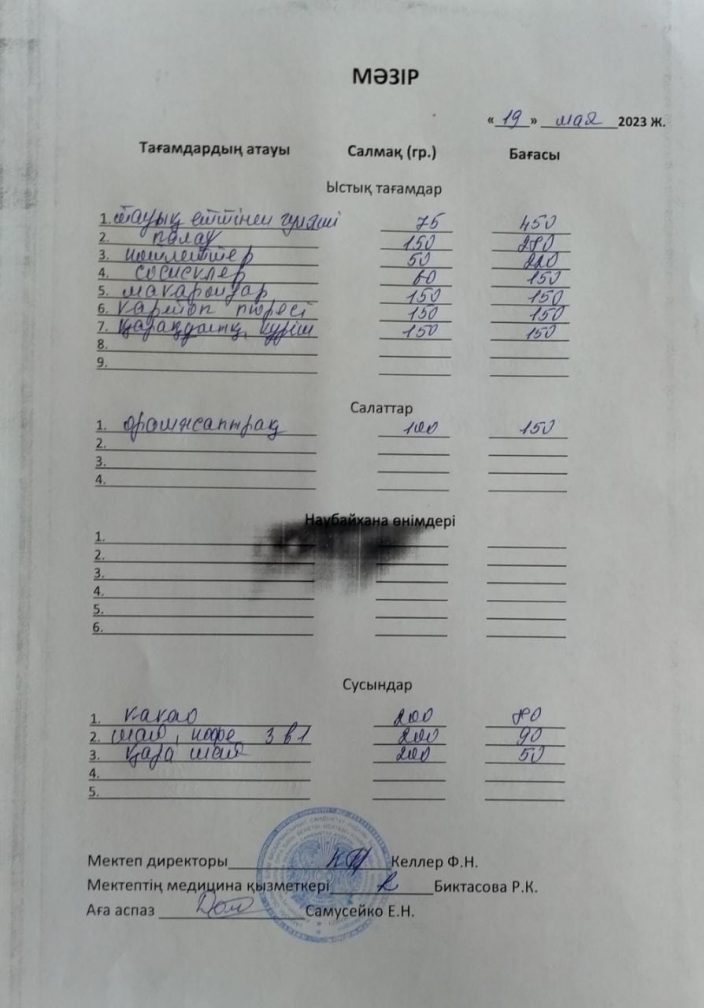 МӘЗІР
«19» мая 2023 ж.
Тағамдардың атауы Салмақ (гр.) Бағасы
Ыстық тағамдар
1. тауық еттінен гуляші 75 450
2. палау 150 280
3. котлеттер 50 220
4. сосисклер 60 150
5. макарондар 150 150
6. картоп пюресі 150 150
7. қарақұмық, күріш 150 150
8.
9.
Салаттар
1. орамжапырақ 100 150
2.
3.
4.
Наубайхана өнімдері
1.
2.
3.
4.
5.
6.
Сусындар
1. какао 200 80
2. шай, кофе 3 в 1 200 90
3. қара шай 200 50
4.
5.
Мектеп директоры Келлер Ф.Н.
Мектептің медицина қызметкері Биктасова Р.К.
Аға аспаз Самусейко Е.Н.